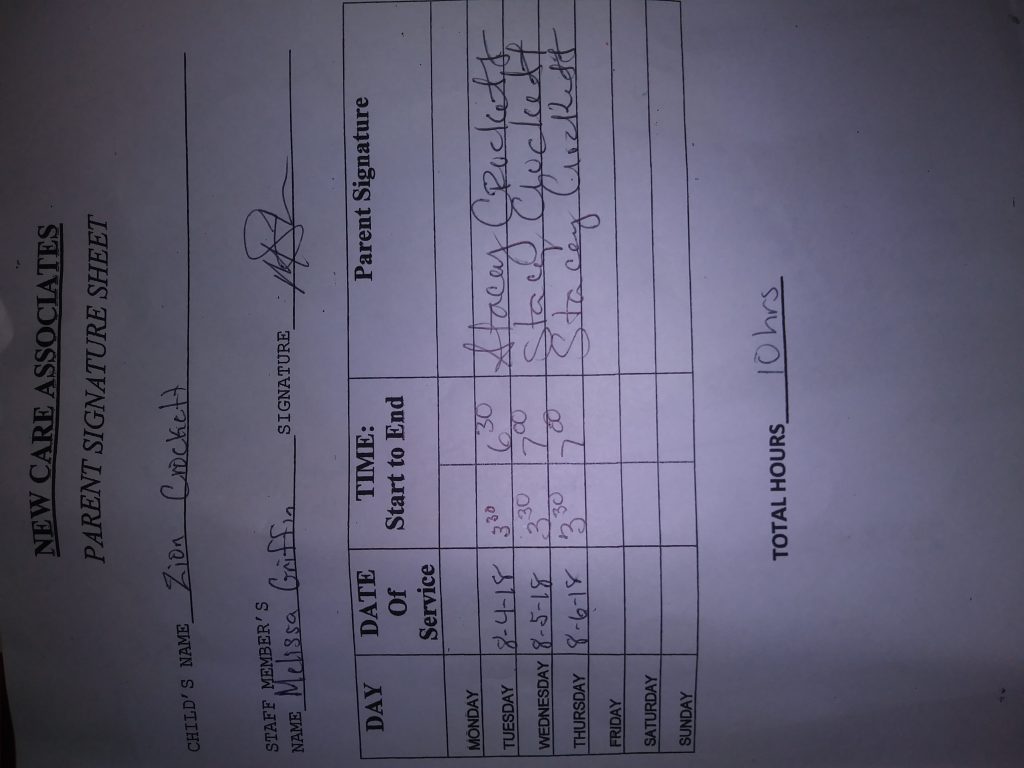 NEW CARE ASSOCIATES
PARENT SIGNATURE SHEET
CHILD'S NAME Zion Crockett
STAFF MEMBER'S
NAME Melissa Griffin SIGNATURE
DAY DATE Of Service TIME: Start to End Parent Signature
MONDAY
TUESDAY 8-4-18 3 30 6 30 Stacey Crockett
WEDNESDAY 8-5-18 3 30 7 00 Stacey Crockett
THURSDAY 8-6-18 3 30 7 00 Stacey Crockett
FRIDAY
SATURDAY
SUNDAY
TOTAL HOURS 10 hrs